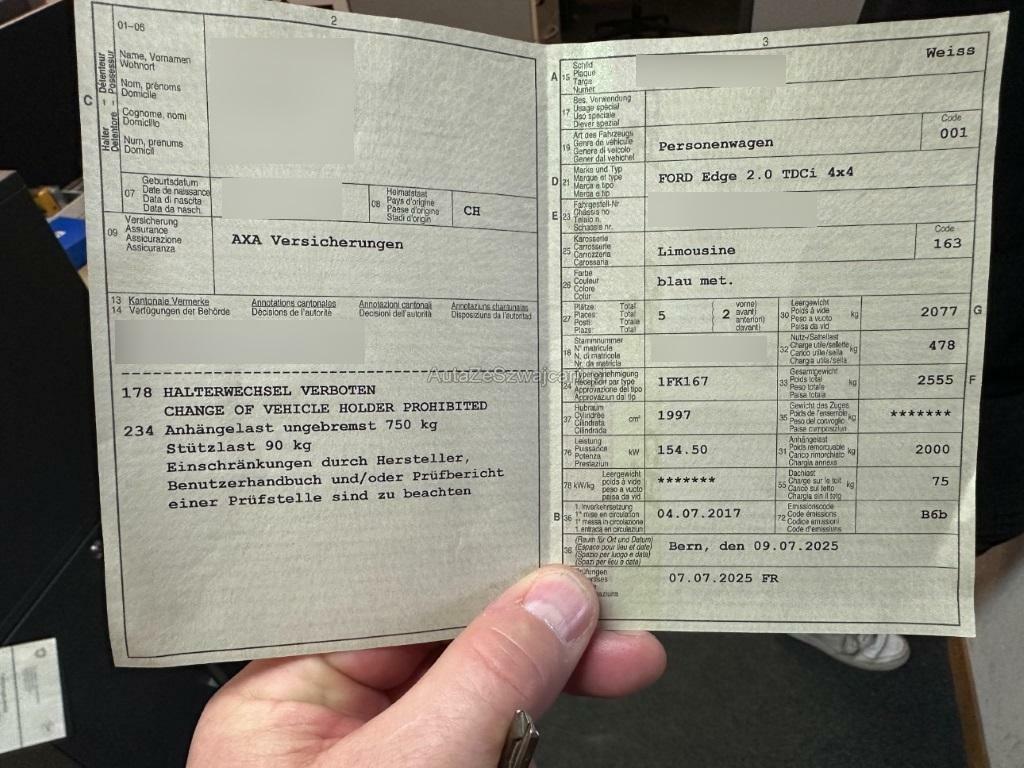 2
01-06
C
Halter Détenteur
Detentore Possessur
Name, Vornamen
Wohnort
Nom, prénoms
Domicile
Cognome, nomi
Domicilio
Num, prenums
Domicil
07
Geburtsdatum
Date de naissance
Data di nascita
Data da nasch.
08
Heimatstaat
Pays d'origine
Paese d'origine
Stadi d'origin
CH
09
Versicherung
Assurance
Assicurazione
Assicuranza
AXA Versicherungen
13 Kantonale Vermerke
14 Verfügungen der Behörde
Annotations cantonales
Décisions de l'autorité
Annotazioni cantonali
Decisioni dell'autorità
Annotaziuns chantunalas
Disposiziuns da l'autoritad
178 HALTERWECHSEL VERBOTEN
CHANGE OF VEHICLE HOLDER PROHIBITED
234 Anhängelast ungebremst 750 kg
Stützlast 90 kg
Einschränkungen durch Hersteller,
Benutzerhandbuch und/oder Prüfbericht
einer Prüfstelle sind zu beachten
AutaZeSzwajcar
3
A 15
Schild
Plaque
Targa
Numer
Weiss
17
Bes. Verwendung
Usage spécial
Uso speciale
Diever spezial
19
Art des Fahrzeugs
Genre de véhicule
Genere di veicolo
Gener dal vehichel
Personenwagen
Code
001
D 21
Marke und Typ
Marque et type
Marca e tipo
Marca e tip
FORD Edge 2.0 TDCi 4x4
E 23
Fahrgestell-Nr
Châssis no
Telaio n.
Schassis nr.
25
Karosserie
Carrosserie
Carrozzeria
Carossaria
Limousine
Code
163
26
Farbe
Couleur
Colore
Colur
blau met.
27
Plätze: Total
Places: Total
Posti: Totale
Plazs: Total
5
2
vorne)
avant)
anteriori)
davant)
30
Leergewicht
Poids à vide
Peso a vuoto
Paisa da vid
kg
2077
G
18
Stammnummer
N° matricule
N. di matricola
Nr. da matricla
32
Nutz-/Sattellast
Charge utile/sellette
Carico utile/sella
Chargia utila/sella
kg
478
24
Typengenehmigung
Réception par type
Approvazione del tipo
Approvaziun dal tip
1FK167
33
Gesamtgewicht
Poids total
Peso totale
Paisa totala
kg
2555
F
37
Hubraum
Cylindrée
Cilindrata
Cilindrada
cm³
1997
35
Gewicht des Zuges
Poids de l'ensemble
Peso del convoglio
Paisa cumposiziun
kg
*******
76
Leistung
Puissance
Potenza
Prestaziun
kW
154.50
31
Anhängelast
Poids remorquable
Carico rimorchiato
Chargia annexa
kg
2000
78 kW/kg
Leergewicht
poids à vide
peso a vuoto
paisa da vid
*******
55
Dachlast
Charge sur le toit
Carico sul tetto
Chargia sin il tetg
kg
75
B 36
1. Inverkehrsetzung
1re mise en circulation
1a messa in circolazione
1. entrada en circulaziun
04.07.2017
72
Emissionscode
Code émissions
Codice emissioni
Code d'emissiuns
B6b
38
(Raum für Ort und Datum)
(Espace pour lieu et date)
(Spazio per luogo e data)
(Spazi per lieu e data)
Bern, den 09.07.2025
07.07.2025 FR